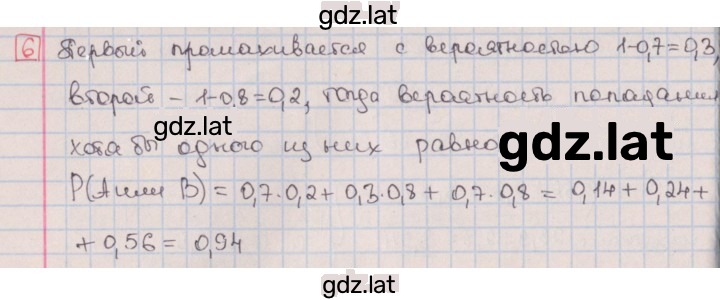 gdz.lat
6 Первый промахивается с вероятностью 1-0,7=0,3,
второй - 1-0.8=0,2, тогда вероятность попадания
gdz.lat
хотя бы одного из них равно
gdz.lat
P(A или B) = 0,7·0,2+ 0,3·0,8+ 0,7·0,8 = 0,14+0,24+
+ 0,56 = 0,94
gdz.lat